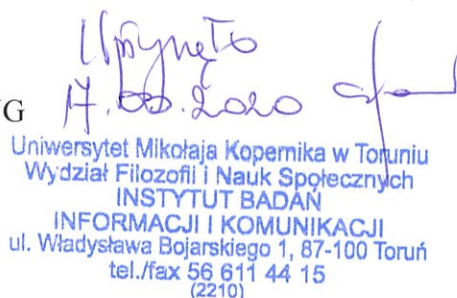 Wpłynęło
17.09.2020
G
Uniwersytet Mikołaja Kopernika w Toruniu
Wydział Filozofii i Nauk Społecznych
INSTYTUT BADAŃ
INFORMACJI I KOMUNIKACJI
ul. Władysława Bojarskiego 1, 87-100 Toruń
tel./fax 56 611 44 15
(2210)